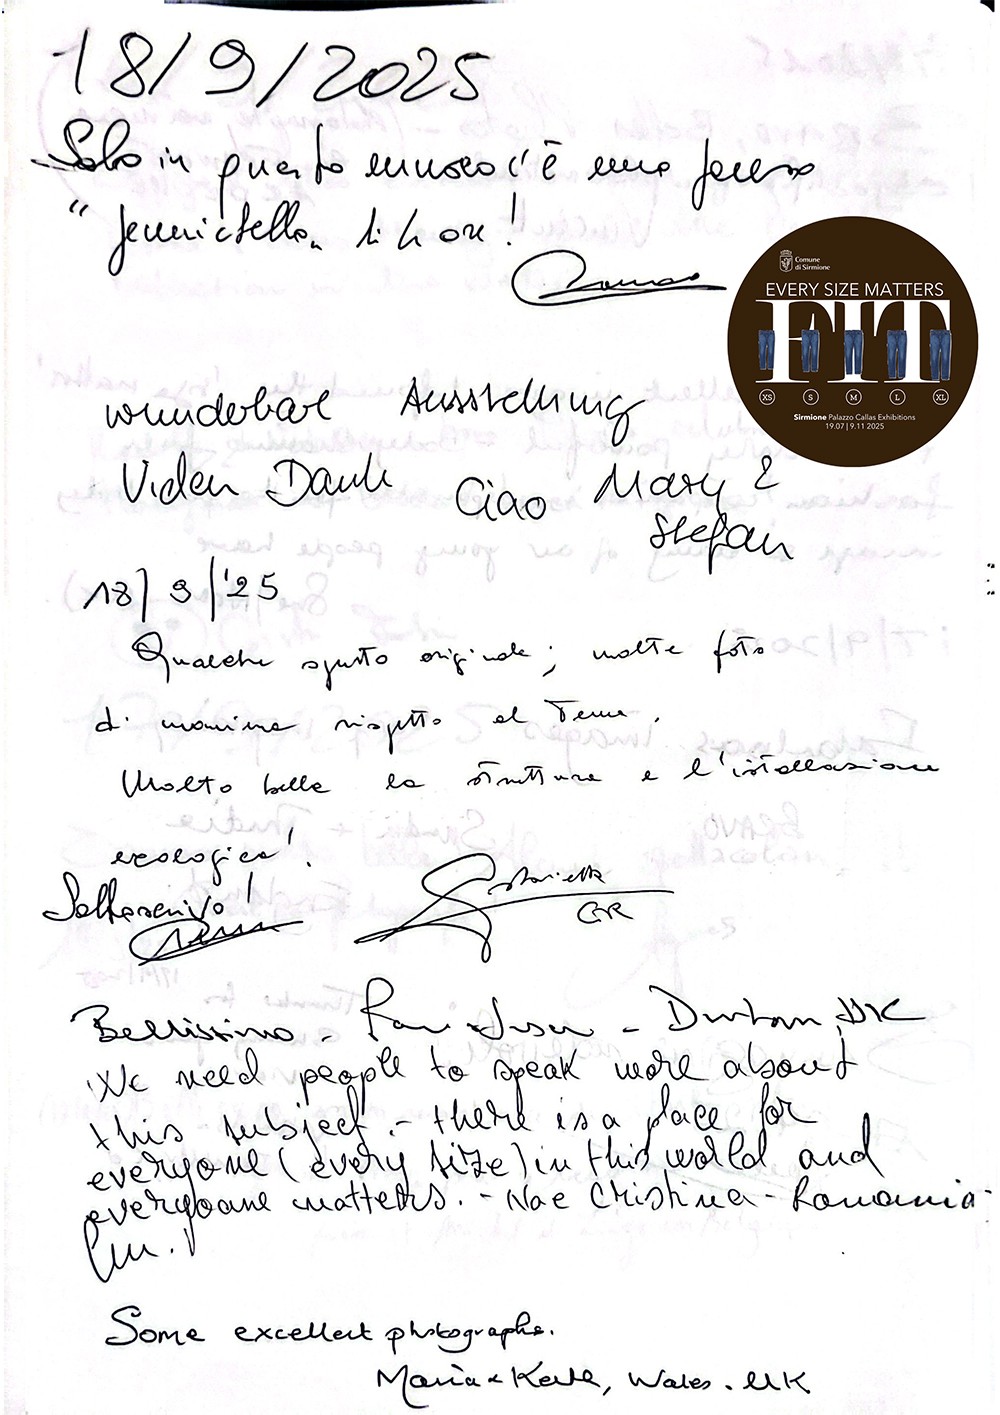 18/9/2025
Solo in questo museo c'è una
di h ore!
Comune
di Sirmione
EVERY SIZE MATTERS
FIT
XS S M L XL
Sirmione Palazzo Callas Exhibitions
19.07 | 9.11 2025
wunderbare Ausstellung
Vielen Dank Ciao Mary &
Stefan
18/9/'25
Qualche spunto originale; molte foto
di maniera rispetto al tema.
Molto bella la struttura e l'istallazione
ecologica!
Sottoscrivo!
GR
Bellissimo - Durham, UK
We need people to speak more about
this subject. - there is a place for
everyone (every size) in this world and
everyoane matters. - Nae Cristina - Romania -
Some excellent photographs.
Maria & Kath, Wales. UK